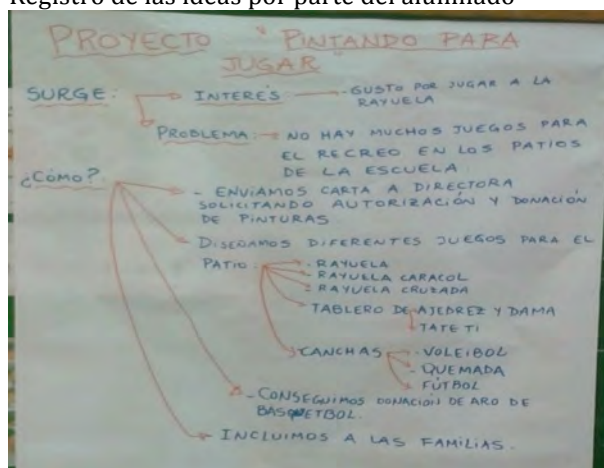 Registro de las ideas por parte del alumnado
PROYECTO "PINTANDO PARA
JUGAR"
SURGE: INTERÉS - GUSTO POR JUGAR A LA
RAYUELA
PROBLEMA: NO HAY MUCHOS JUEGOS PARA
EL RECREO EN LOS PATIOS
DE LA ESCUELA
¿CÓMO?
- ENVIAMOS CARTA A DIRECTORA
SOLICITANDO AUTORIZACIÓN Y DONACIÓN
DE PINTURAS.
- DISEÑAMOS DIFERENTES JUEGOS PARA EL
PATIO: - RAYUELA
- RAYUELA CARACOL
- RAYUELA CRUZADA
- TABLERO DE AJEDREZ Y DAMA
TATE TI
CANCHAS - VOLEIBOL
- QUEMADA
- FÚTBOL
- CONSEGUIMOS DONACIÓN DE ARO DE
BASQUETBOL.
- INCLUIMOS A LAS FAMILIAS.